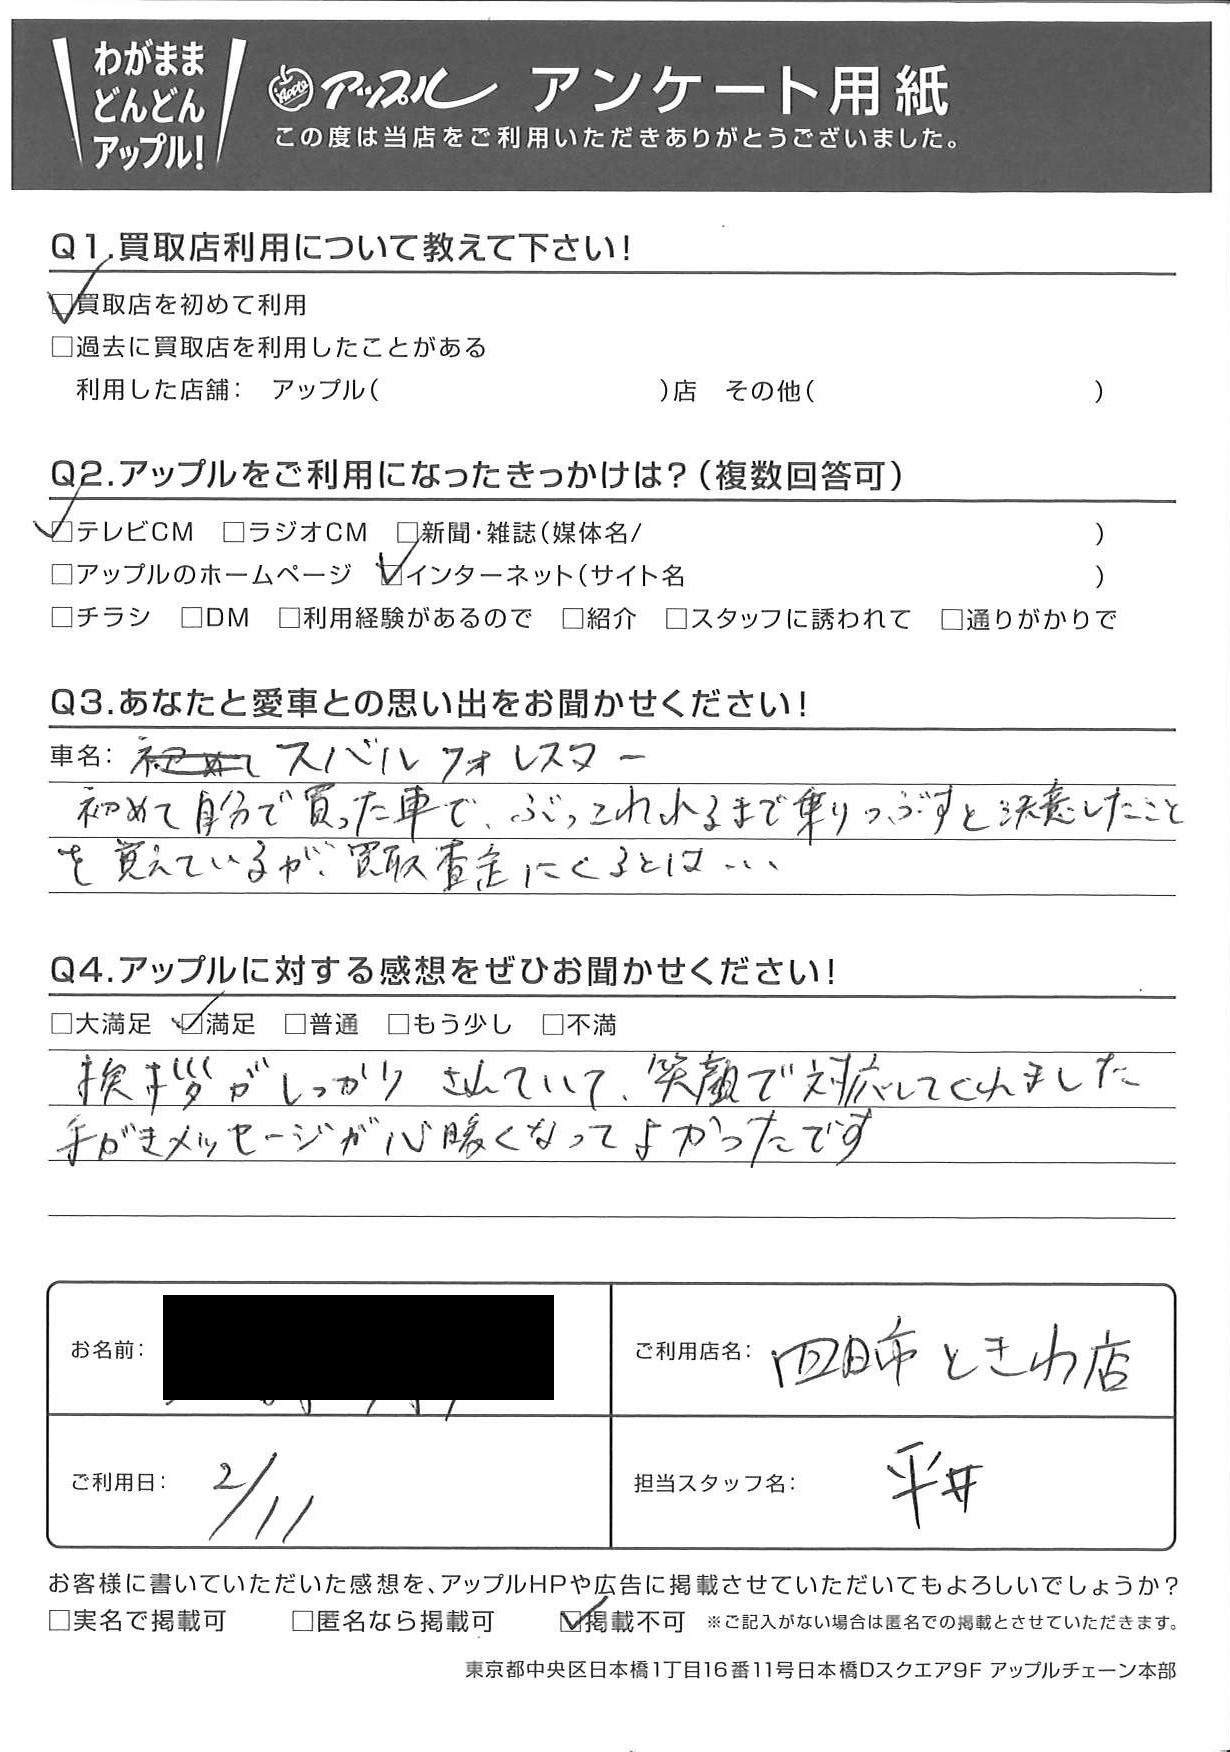 わがまま
どんどん
アップル!
Apple アップル アンケート用紙
この度は当店をご利用いただきありがとうございました。
Q1.買取店利用について教えて下さい!
☑買取店を初めて利用
□過去に買取店を利用したことがある
利用した店舗: アップル( )店 その他( )
Q2.アップルをご利用になったきっかけは?(複数回答可)
☑テレビCM □ラジオCM □新聞・雑誌(媒体名/ )
□アップルのホームページ ☑インターネット(サイト名 )
□チラシ □DM □利用経験があるので □紹介 □スタッフに誘われて □通りがかりで
Q3.あなたと愛車との思い出をお聞かせください!
車名: 初めて スバル フォレスター
初めて自分で買った車で、ぶっこわれるまで乗りつぶすと決意したこと
を覚えているが、買取査定にくるとは…
Q4.アップルに対する感想をぜひお聞かせください!
□大満足 ☑満足 □普通 □もう少し □不満
挨拶がしっかりされていて、笑顔で対応してくれました
手がきメッセージが心暖くなってよかったです
お名前:
ご利用店名: 四日市ときわ店
ご利用日: 2/11
担当スタッフ名: 平井
お客様に書いていただいた感想を、アップルHPや広告に掲載させていただいてもよろしいでしょうか?
□実名で掲載可 □匿名なら掲載可 ☑掲載不可 ※ご記入がない場合は匿名での掲載とさせていただきます。
東京都中央区日本橋1丁目16番11号日本橋Dスクエア9F アップルチェーン本部